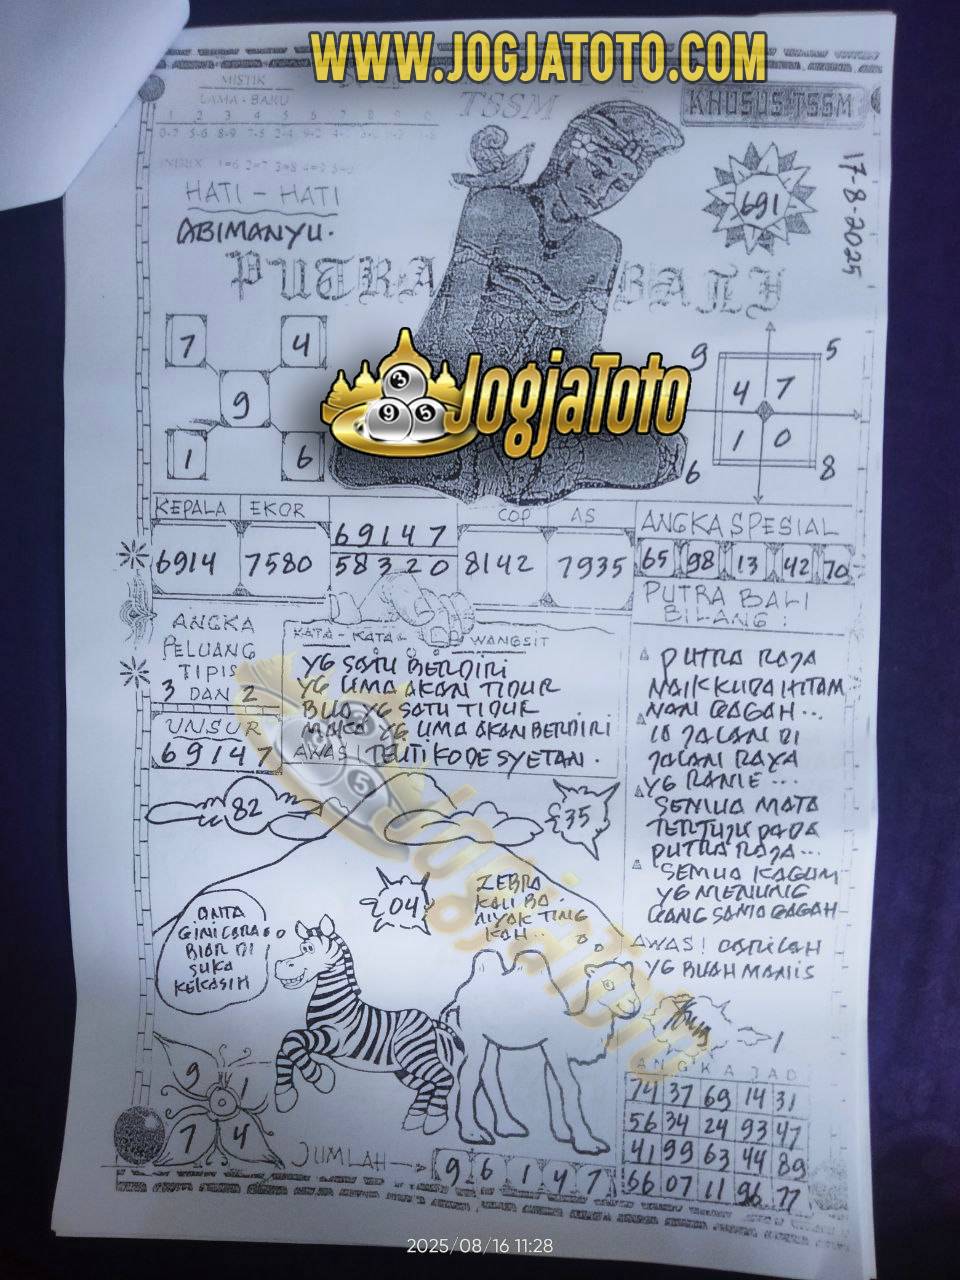 WWW.JOGJATOTO.COM
MISTIK
LAMA - BARU
1 2 3 4 5 6 7 8 9 0
TSSM
KHUSUS TSSM
17-8-2025
HATI - HATI
ABIMANYU.
691
PUTRA BALI
7 4
9
1 6
JogjaToto
3
9 5
9 5
4 7
1 0
6 8
KEPALA EKOR
6914 7580
69147
58320
COP AS
8142 7935
ANGKA SPESIAL
65 98 13 42 70
ANGKA
PELUANG
TIPIS
3 DAN 2
UNSUR
69147
KATA - KATA WANGSIT
YG SATU BERDIRI
YG LIMA AKAN TIDUR
BILA YG SATU TIDUR
MAKA YG LIMA AKAN BERDIRI
AWAS! TELITI KODE SYETAN.
PUTRA BALI
BILANG :
PUTRA RAJA
NAIK KUDA HITAM
NAN GAGAH...
JALAN RAYA
YG RAME ...
SEMUA MATA
TERTUJU PADA
PUTRA RAJA...
SEMUA KAGUM
YG MEMANG
AWAS!
YG BUAH MANIS
82
35
04
ZEBRA
KOH..
ONTA
GINI CARA
BIAR DI
SUKA
KEKASIH
9 1
7 4
JUMLAH
9 6 1 4 7
ANGKA JADI
74 37 69 14 31
56 34 24 93 47
41 99 63 44 89
66 07 11 96 77
2025/08/16 11:28